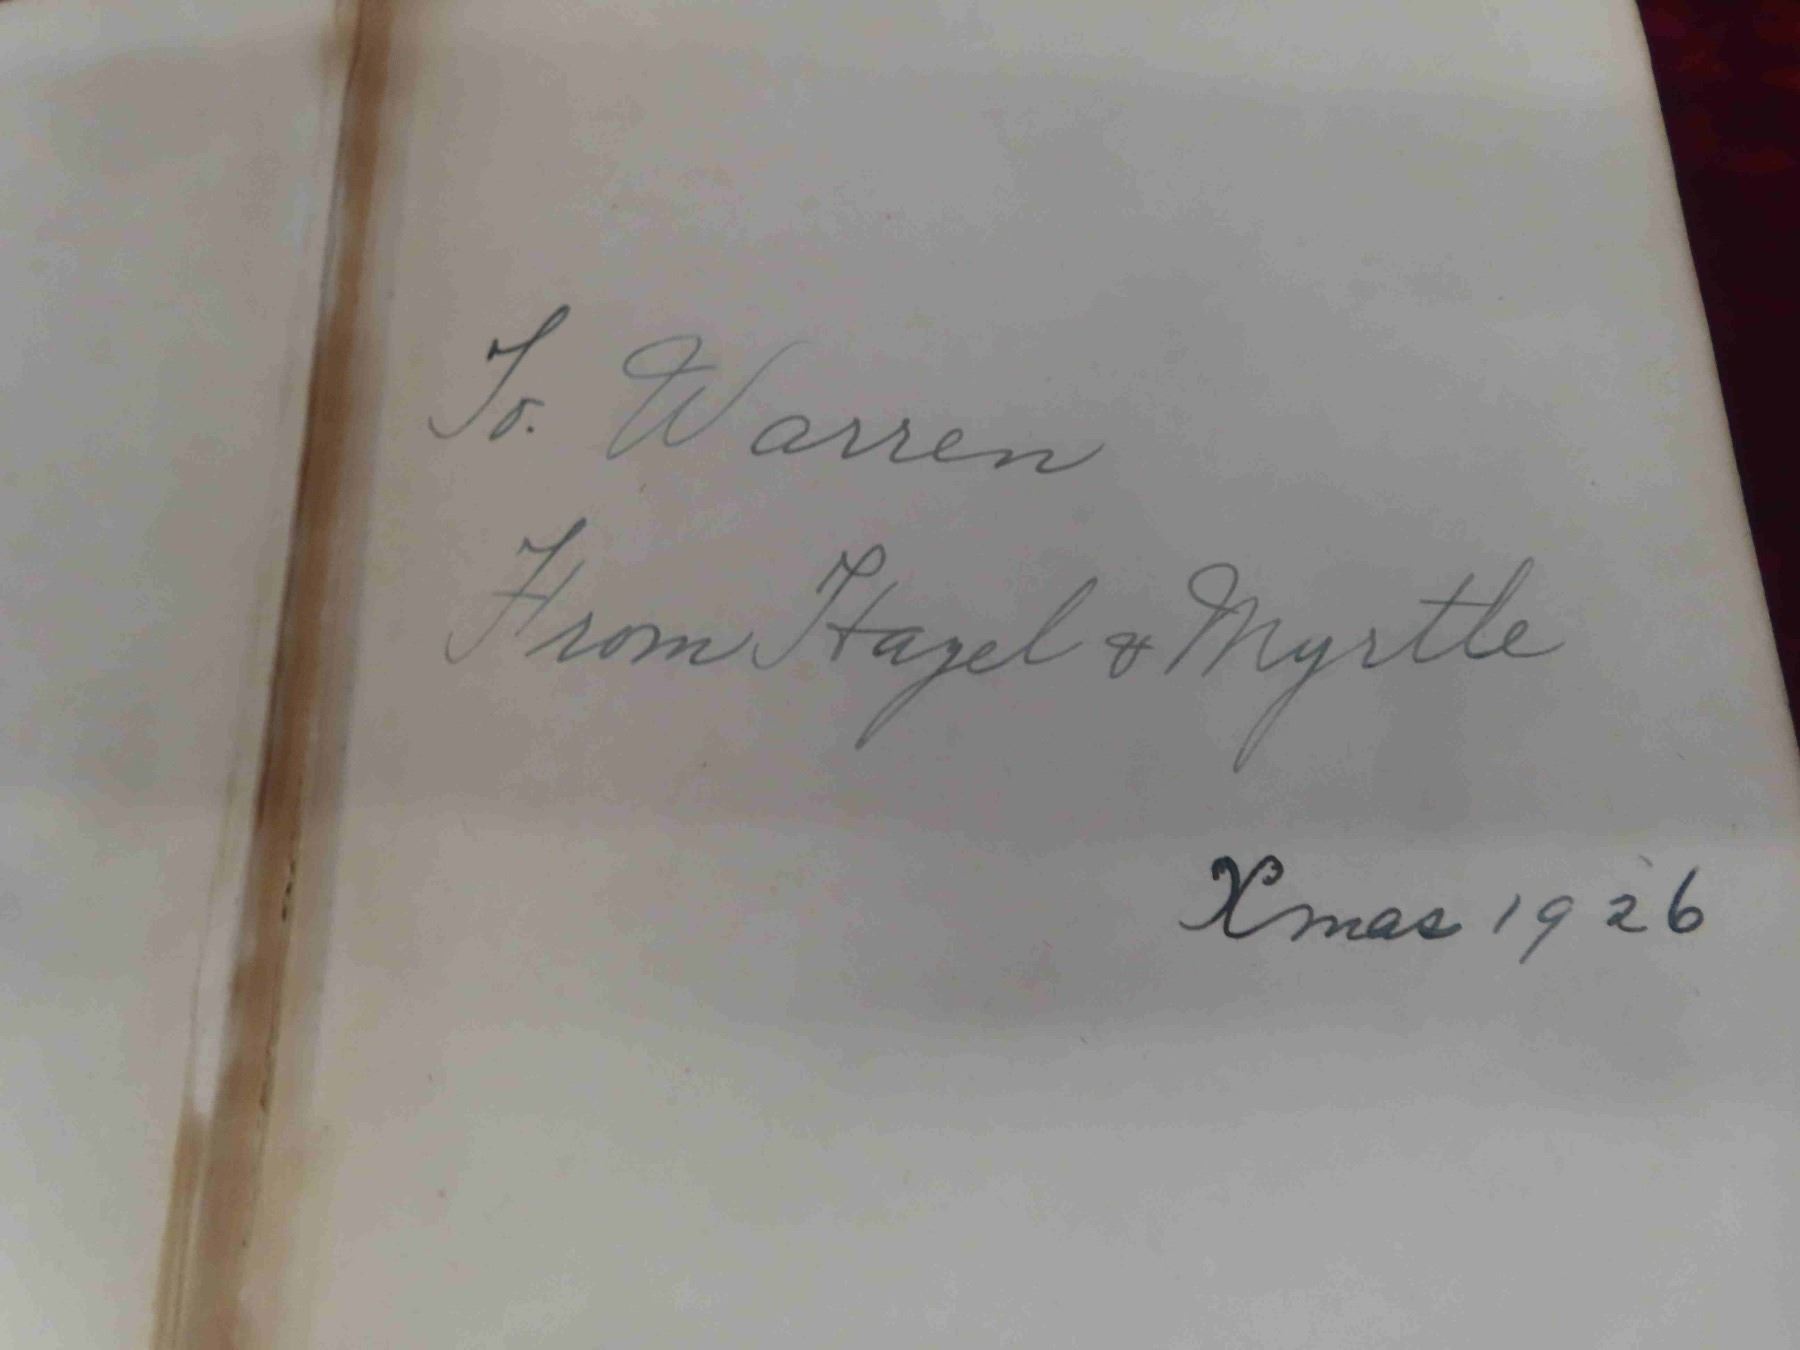 To. Warren
From Hazel & Myrtle
Xmas 1926